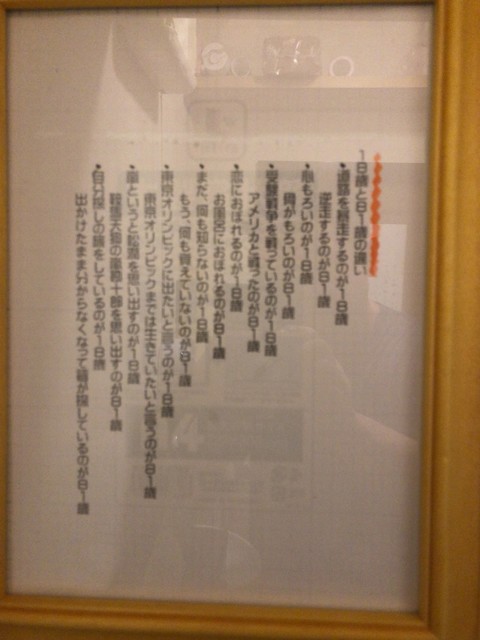 18歳と81歳の違い
・道路を暴走するのが18歳
逆走するのが81歳
・心もろいのが18歳
骨がもろいのが81歳
・受験戦争を戦っているのが18歳
アメリカと戦ったのが81歳
・恋におぼれるのが18歳
お風呂におぼれるのが81歳
・まだ、何も知らないのが18歳
もう、何も覚えていないのが81歳
・東京オリンピックに出たいと言うのが18歳
東京オリンピックまでは生きていたいと言うのが81歳
・嵐というと松潤を思い出すのが18歳
鞍馬天狗の嵐寛十郎を思い出すのが81歳
・自分探しの旅をしているのが18歳
出かけたまま分からなくなって皆が探しているのが81歳